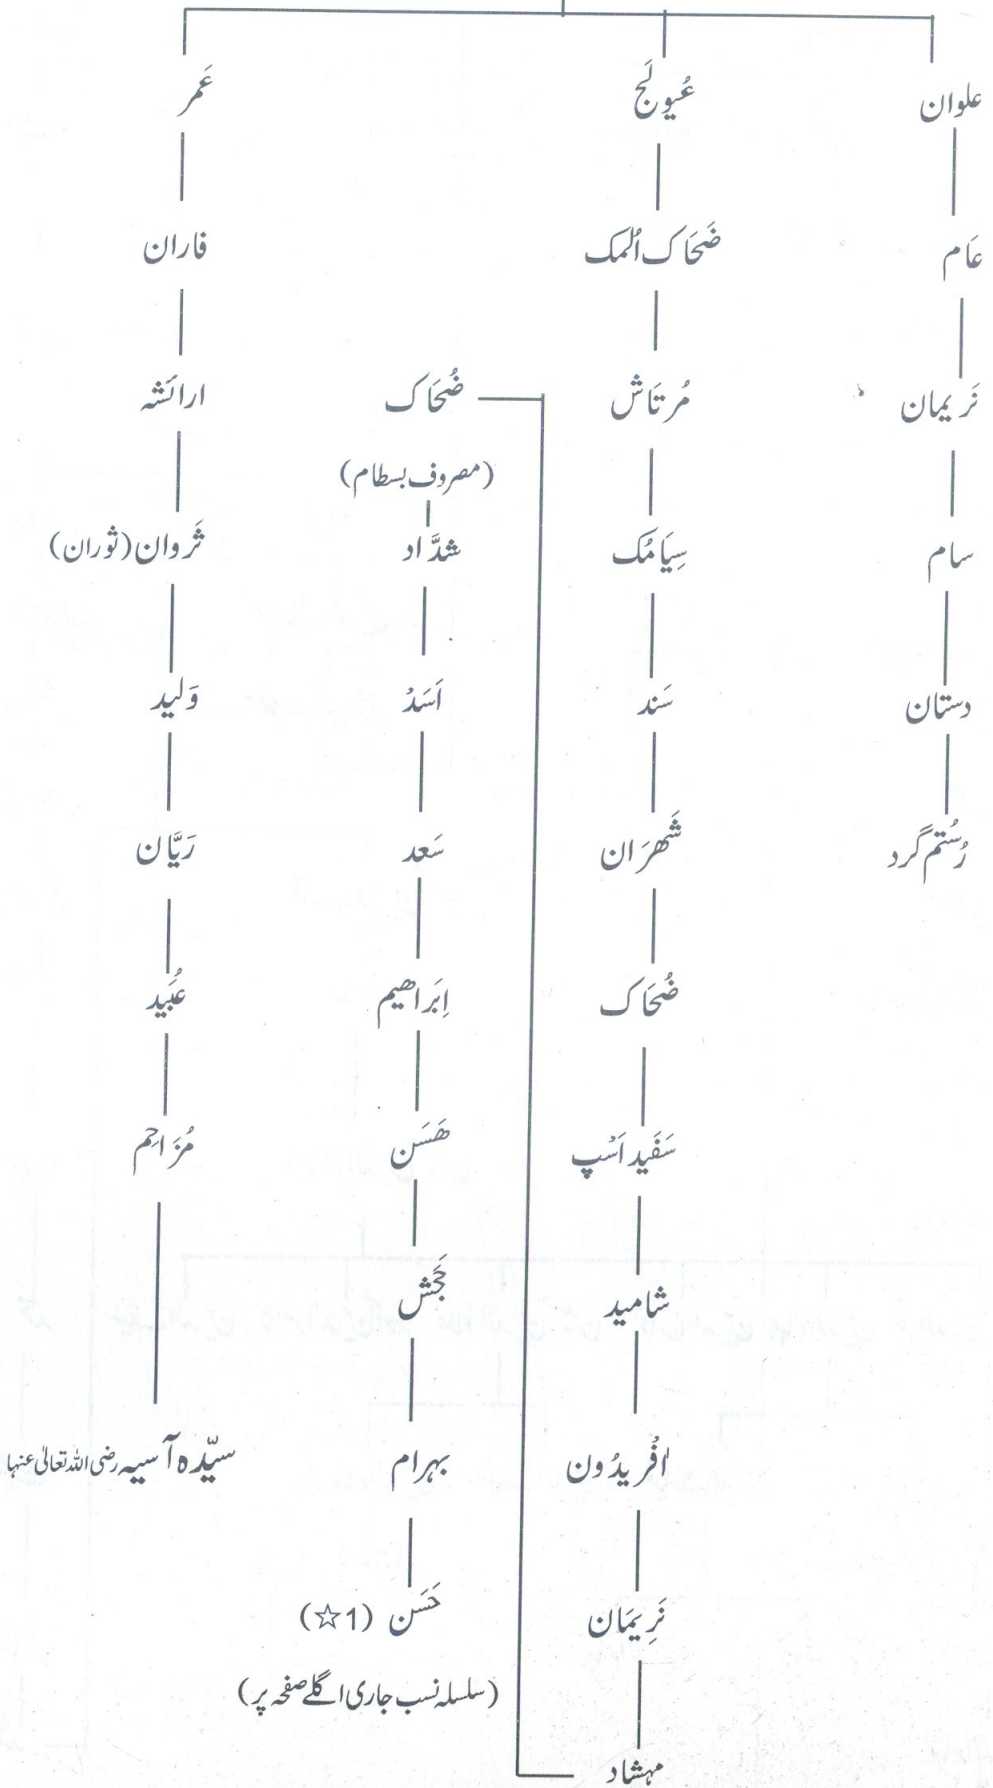 علوان
عَام
نَریمان
سام
دستان
رُستم گرد
عُیولَج
ضَحَاک اُلمک
مُرتَاش
سِیَامُک
سَند
شَھرَان
ضُحَاک
سَفَید اَسْپ
شامید
افْریدُون
نَرِیمَان
مہشاد
ضُحَاک
(مصروف بسطام)
شدَّاد
اَسَدْ
سَعد
اِبَراھیم
ھَسَن
بہرام
حَسَن (☆1)
(سلسلہ نسب جاری اگلے صفحہ پر)
عَمر
فاران
ارائشہ
ثَروان (ثوران)
وَلید
رَیَّان
عُبَید
مُزَاحِم
سیّدہ آسیہ رضی اللہ تعالیٰ عنہا